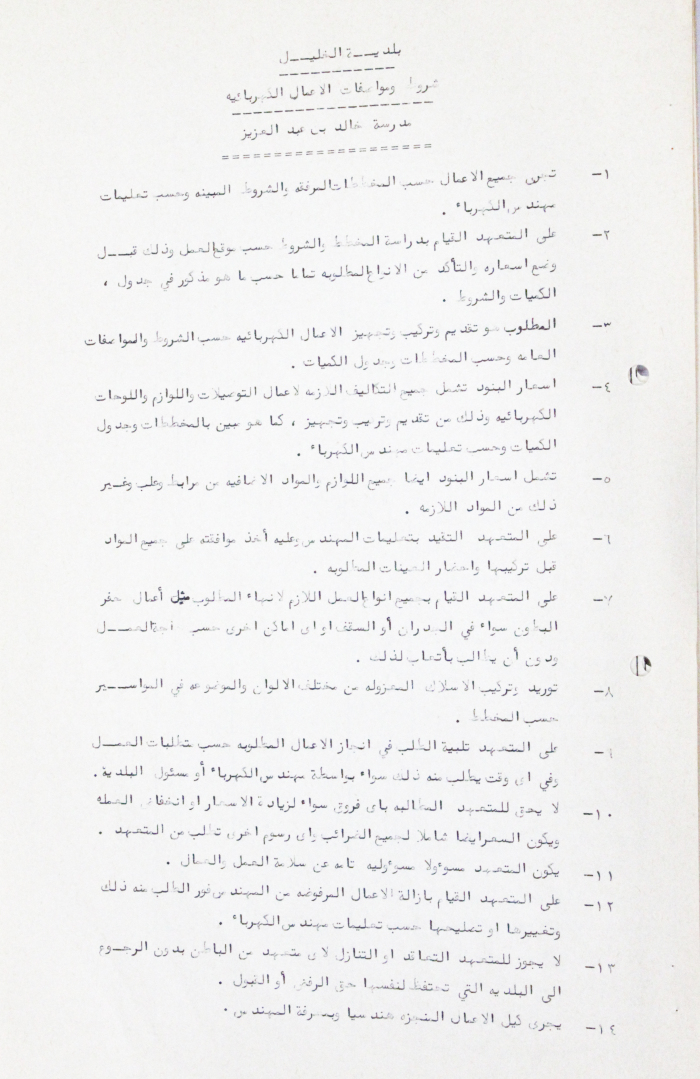 بلديـــة الخليـــل
شروط ومواصفات الاعمال الكهربائيه
مدرسة خالد بن عبد العزيز
١- تجرى جميع الاعمال حسب المخططات المرفقه والشروط المبينه وحسب تعليمات
مهندس الكهرباء .
٢- على المتعهد القيام بدراسة المخطط والشروط حسب موقع العمل وذلك قبـــل
وضع اسعاره والتأكد من الانواع المطلوبه تماما حسب ما هو مذكور في جدول ،
الكميات والشروط .
٣- المطلوب هو تقديم وتركيب وتجهيز الاعمال الكهربائيه حسب الشروط والمواصفات
العامه وحسب المخططات وجدول الكميات .
٤- اسعار البنود تشمل جميع التكاليف اللازمه لاعمال التوصيلات واللوازم واللوحات
الكهربائيه وذلك من تقديم وتركيب وتجهيز ، كما هو مبين بالمخططات وجدول
الكميات وحسب تعليمات مهندس الكهرباء .
٥- تشمل اسعار البنود ايضا جميع اللوازم والمواد الاضافيه من مرابط وعلب وغـير
ذلك من المواد اللازمه .
٦- على المتعهد التقيد بتعليمات المهندس وعليه أخذ موافقته على جميع المواد
قبل تركيبها واحضار العينات المطلوبه .
٧- على المتعهد القيام بجميع انواع العمل اللازم لانهاء المطلوب مثل أعمال حفر
البطون سواء في الجدران أو السقف او اى اماكن اخرى حسب حاجة العمـــل
ودون أن يطالب بأتعاب لذلك .
٨- توريد وتركيب الاسلاك المعزوله من مختلف الالوان والموضوعه في المواســير
حسب المخطط .
٩- على المتعهد تلبية الطلب في انجاز الاعمال المطلوبه حسب متطلبات العمــل
وفي اى وقت يطلب منه ذلك سواء بواسطة مهندس الكهرباء أو مسئول البلدية .
١٠- لا يحق للمتعهد المطالبه باى فروق سواء لزيادة الاسعار او انخفاض العمله
ويكون السعر ايضا شاملا لجميع الضرائب واى رسوم اخرى تطلب من المتعهد .
١١- يكون المتعهد مسوولا مسووليه تامه عن سلامة العمل والعمال .
١٢- على المتعهد القيام بازالة الاعمال المرفوضه من المهندس فور الطلب منه ذلك
وتغييرها او تصليحها حسب تعليمات مهندس الكهرباء .
١٣- لا يجوز للمتعهد التعاقد او التنازل لاى متعهد من الباطن بدون الرجــوع
الى البلديه التي تحتفظ لنفسها حق الرفض أو القبول .
١٤- يجرى كيل الاعمال المنجزه هندسيا وبمعرفة المهندس .